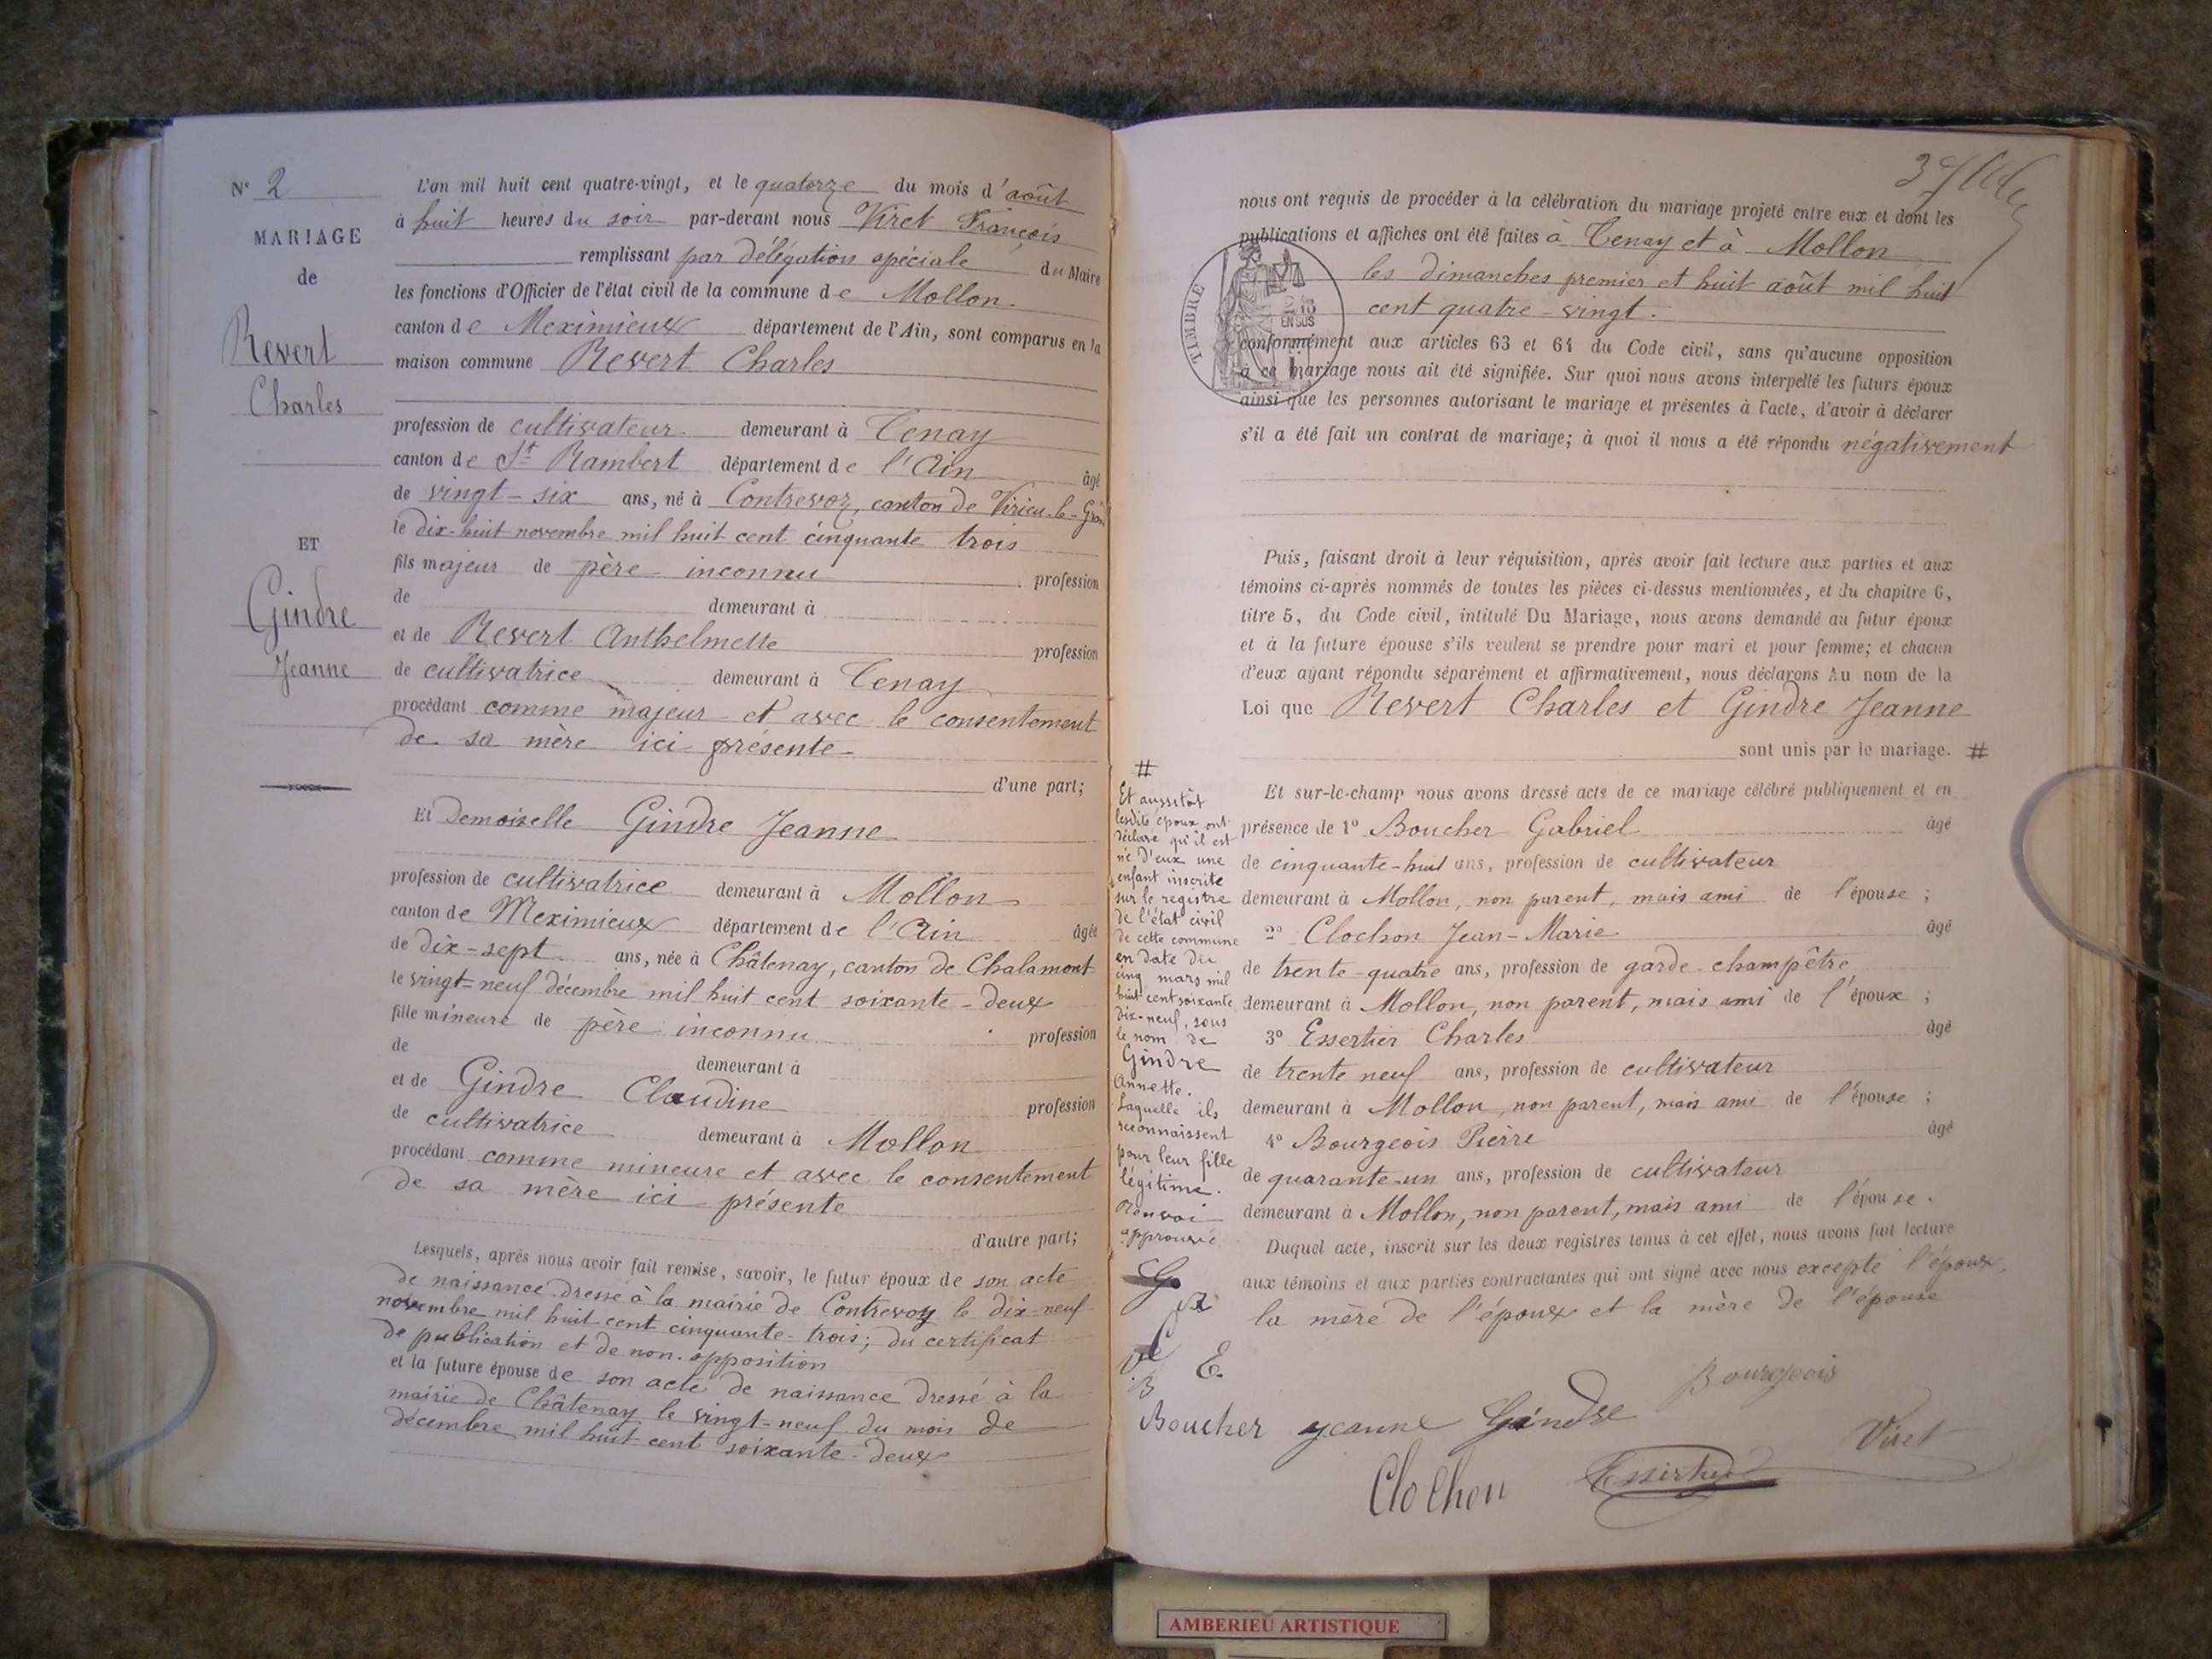 N° 2
MARIAGE
de
Revert
Charles
ET
Gindre
Jeanne
L'an mil huit cent quatre-vingt, et le quatorze du mois d'août
à huit heures du soir par-devant nous Viret François
remplissant par délégation spéciale du Maire
les fonctions d'Officier de l'état civil de la commune de Mollon
canton de Meximieux département de l'Ain, sont comparus en la
maison commune Revert Charles
profession de cultivateur demeurant à Tenay
canton de St Rambert département de l'Ain âgé
de vingt-six ans, né à Contrevoz, canton de Virieu-le-Grand
le dix-huit novembre mil huit cent cinquante trois
fils majeur de père inconnu profession
de demeurant à
et de Revert Anthelmette profession
de cultivatrice demeurant à Tenay
procédant comme majeur et avec le consentement
de sa mère ici présente
d'une part;
Et Demoiselle Gindre Jeanne
profession de cultivatrice demeurant à Mollon
canton de Meximieux département de l'Ain âgée
de dix-sept ans, née à Châtenay, canton de Chalamont
le vingt-neuf décembre mil huit cent soixante-deux
fille mineure de père inconnu profession
de demeurant à
et de Gindre Claudine profession
de cultivatrice demeurant à Mollon
procédant comme mineure et avec le consentement
de sa mère ici présente
d'autre part;
Lesquels, après nous avoir fait remise, savoir, le futur époux de son acte
de naissance dressé à la mairie de Contrevoz le dix-neuf
novembre mil huit cent cinquante-trois; du certificat
de publication et de non-opposition
et la future épouse de son acte de naissance dressé à la
mairie de Châtenay le vingt-neuf du mois de
décembre mil huit cent soixante-deux
nous ont requis de procéder à la célébration du mariage projeté entre eux et dont les
publications et affiches ont été faites à Tenay et à Mollon
les dimanches premier et huit août mil huit
cent quatre-vingt.
TIMBRE
EN SUS
conformément aux articles 63 et 64 du Code civil, sans qu'aucune opposition
à ce mariage nous ait été signifiée. Sur quoi nous avons interpellé les futurs époux
ainsi que les personnes autorisant le mariage et présentes à l'acte, d'avoir à déclarer
s'il a été fait un contrat de mariage; à quoi il nous a été répondu négativement
Puis, faisant droit à leur réquisition, après avoir fait lecture aux parties et aux
témoins ci-après nommés de toutes les pièces ci-dessus mentionnées, et du chapitre 6,
titre 5, du Code civil, intitulé Du Mariage, nous avons demandé au futur époux
et à la future épouse s'ils veulent se prendre pour mari et pour femme; et chacun
d'eux ayant répondu séparément et affirmativement, nous déclarons Au nom de la
Loi que Revert Charles et Gindre Jeanne
sont unis par le mariage. #
Et sur-le-champ nous avons dressé acte de ce mariage célébré publiquement et en
présence de 1° Boucher Gabriel âgé
de cinquante-huit ans, profession de cultivateur
demeurant à Mollon, non parent, mais ami de l'épouse ;
2° Clochon Jean-Marie âgé
de trente-quatre ans, profession de garde-champêtre
demeurant à Mollon, non parent, mais ami de l'époux ;
3° Essertier Charles âgé
de trente neuf ans, profession de cultivateur
demeurant à Mollon, non parent, mais ami de l'épouse ;
4° Bourgeois Pierre âgé
de quarante-un ans, profession de cultivateur
demeurant à Mollon, non parent, mais ami de l'épouse.
Duquel acte, inscrit sur les deux registres tenus à cet effet, nous avons fait lecture
aux témoins et aux parties contractantes qui ont signé avec nous excepté l'époux,
la mère de l'époux et la mère de l'épouse
#
Et aussitôt
lesdits époux ont
déclaré qu'il est
né d'eux une
enfant inscrite
sur le registre
de l'état civil
de cette commune
en date du
cinq mars mil
huit cent soixante
dix-neuf, sous
le nom de
Gindre
Annette.
Laquelle ils
reconnaissent
pour leur fille
légitime.
Renvoi
approuvé
E.
B
Bourgeois
Boucher Jeanne Gindre
Viret
Clochon Essertier
AMBERIEU ARTISTIQUE